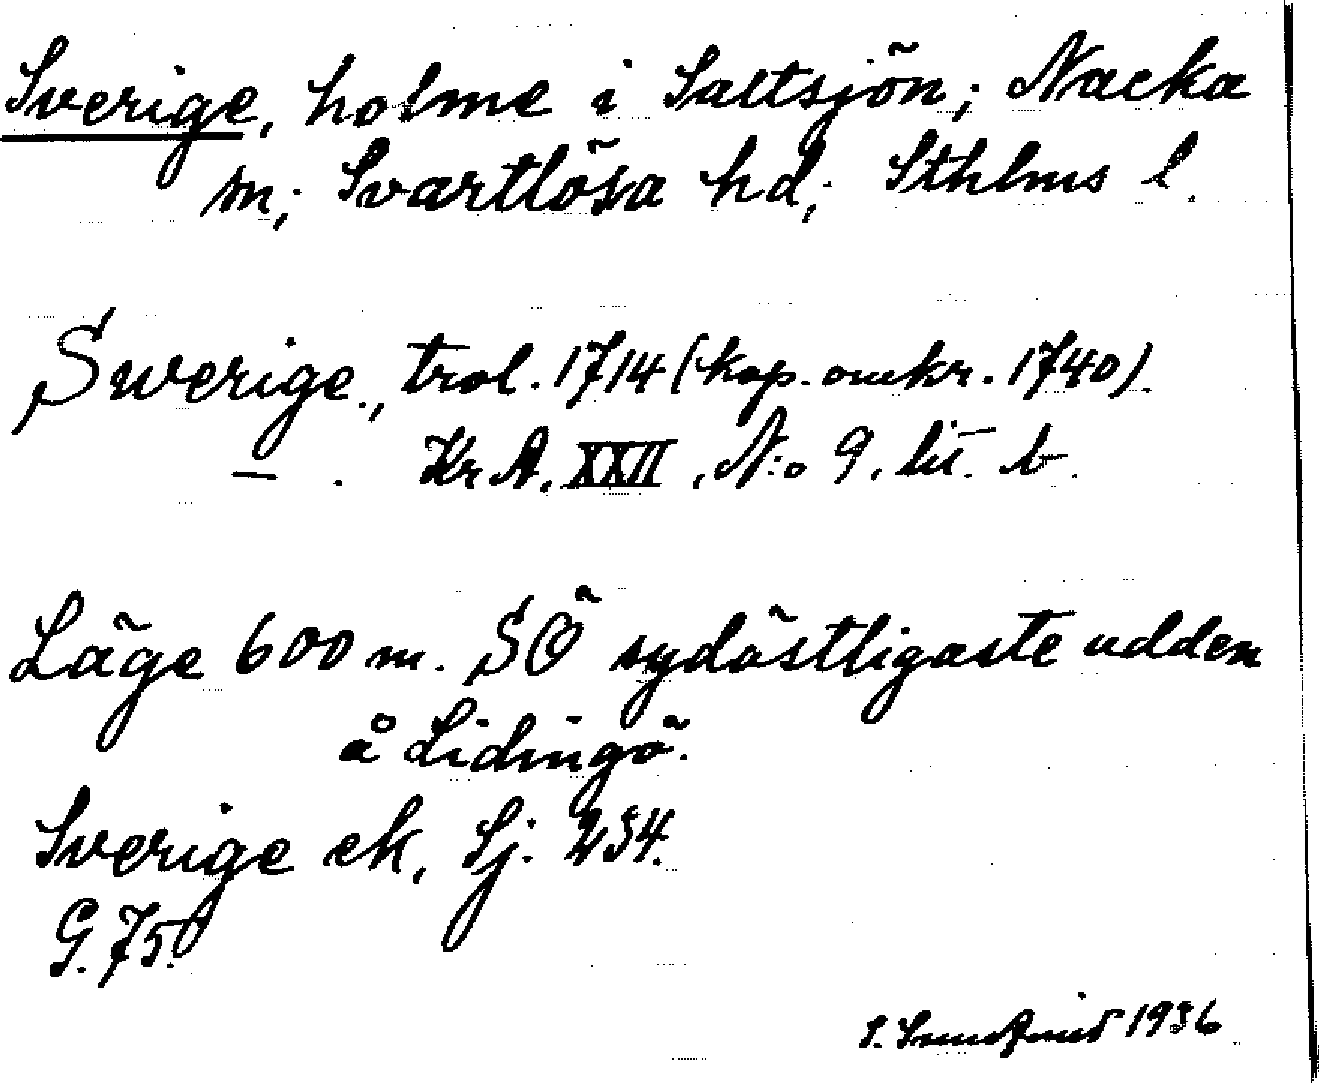 Sverige, holme i Saltsjön; Nacka
sn; Svartlösa hd; Sthlms l.
Swerige., trol. 1714 (kop. omkr. 1740).
— . Kr A. XXII, N:o 9. lit. b.
Läge 600 m. SÖ sydöstligaste udden
å Lidingö.
Sverige ek, Sj. 234.
G. 75.
S. 1936